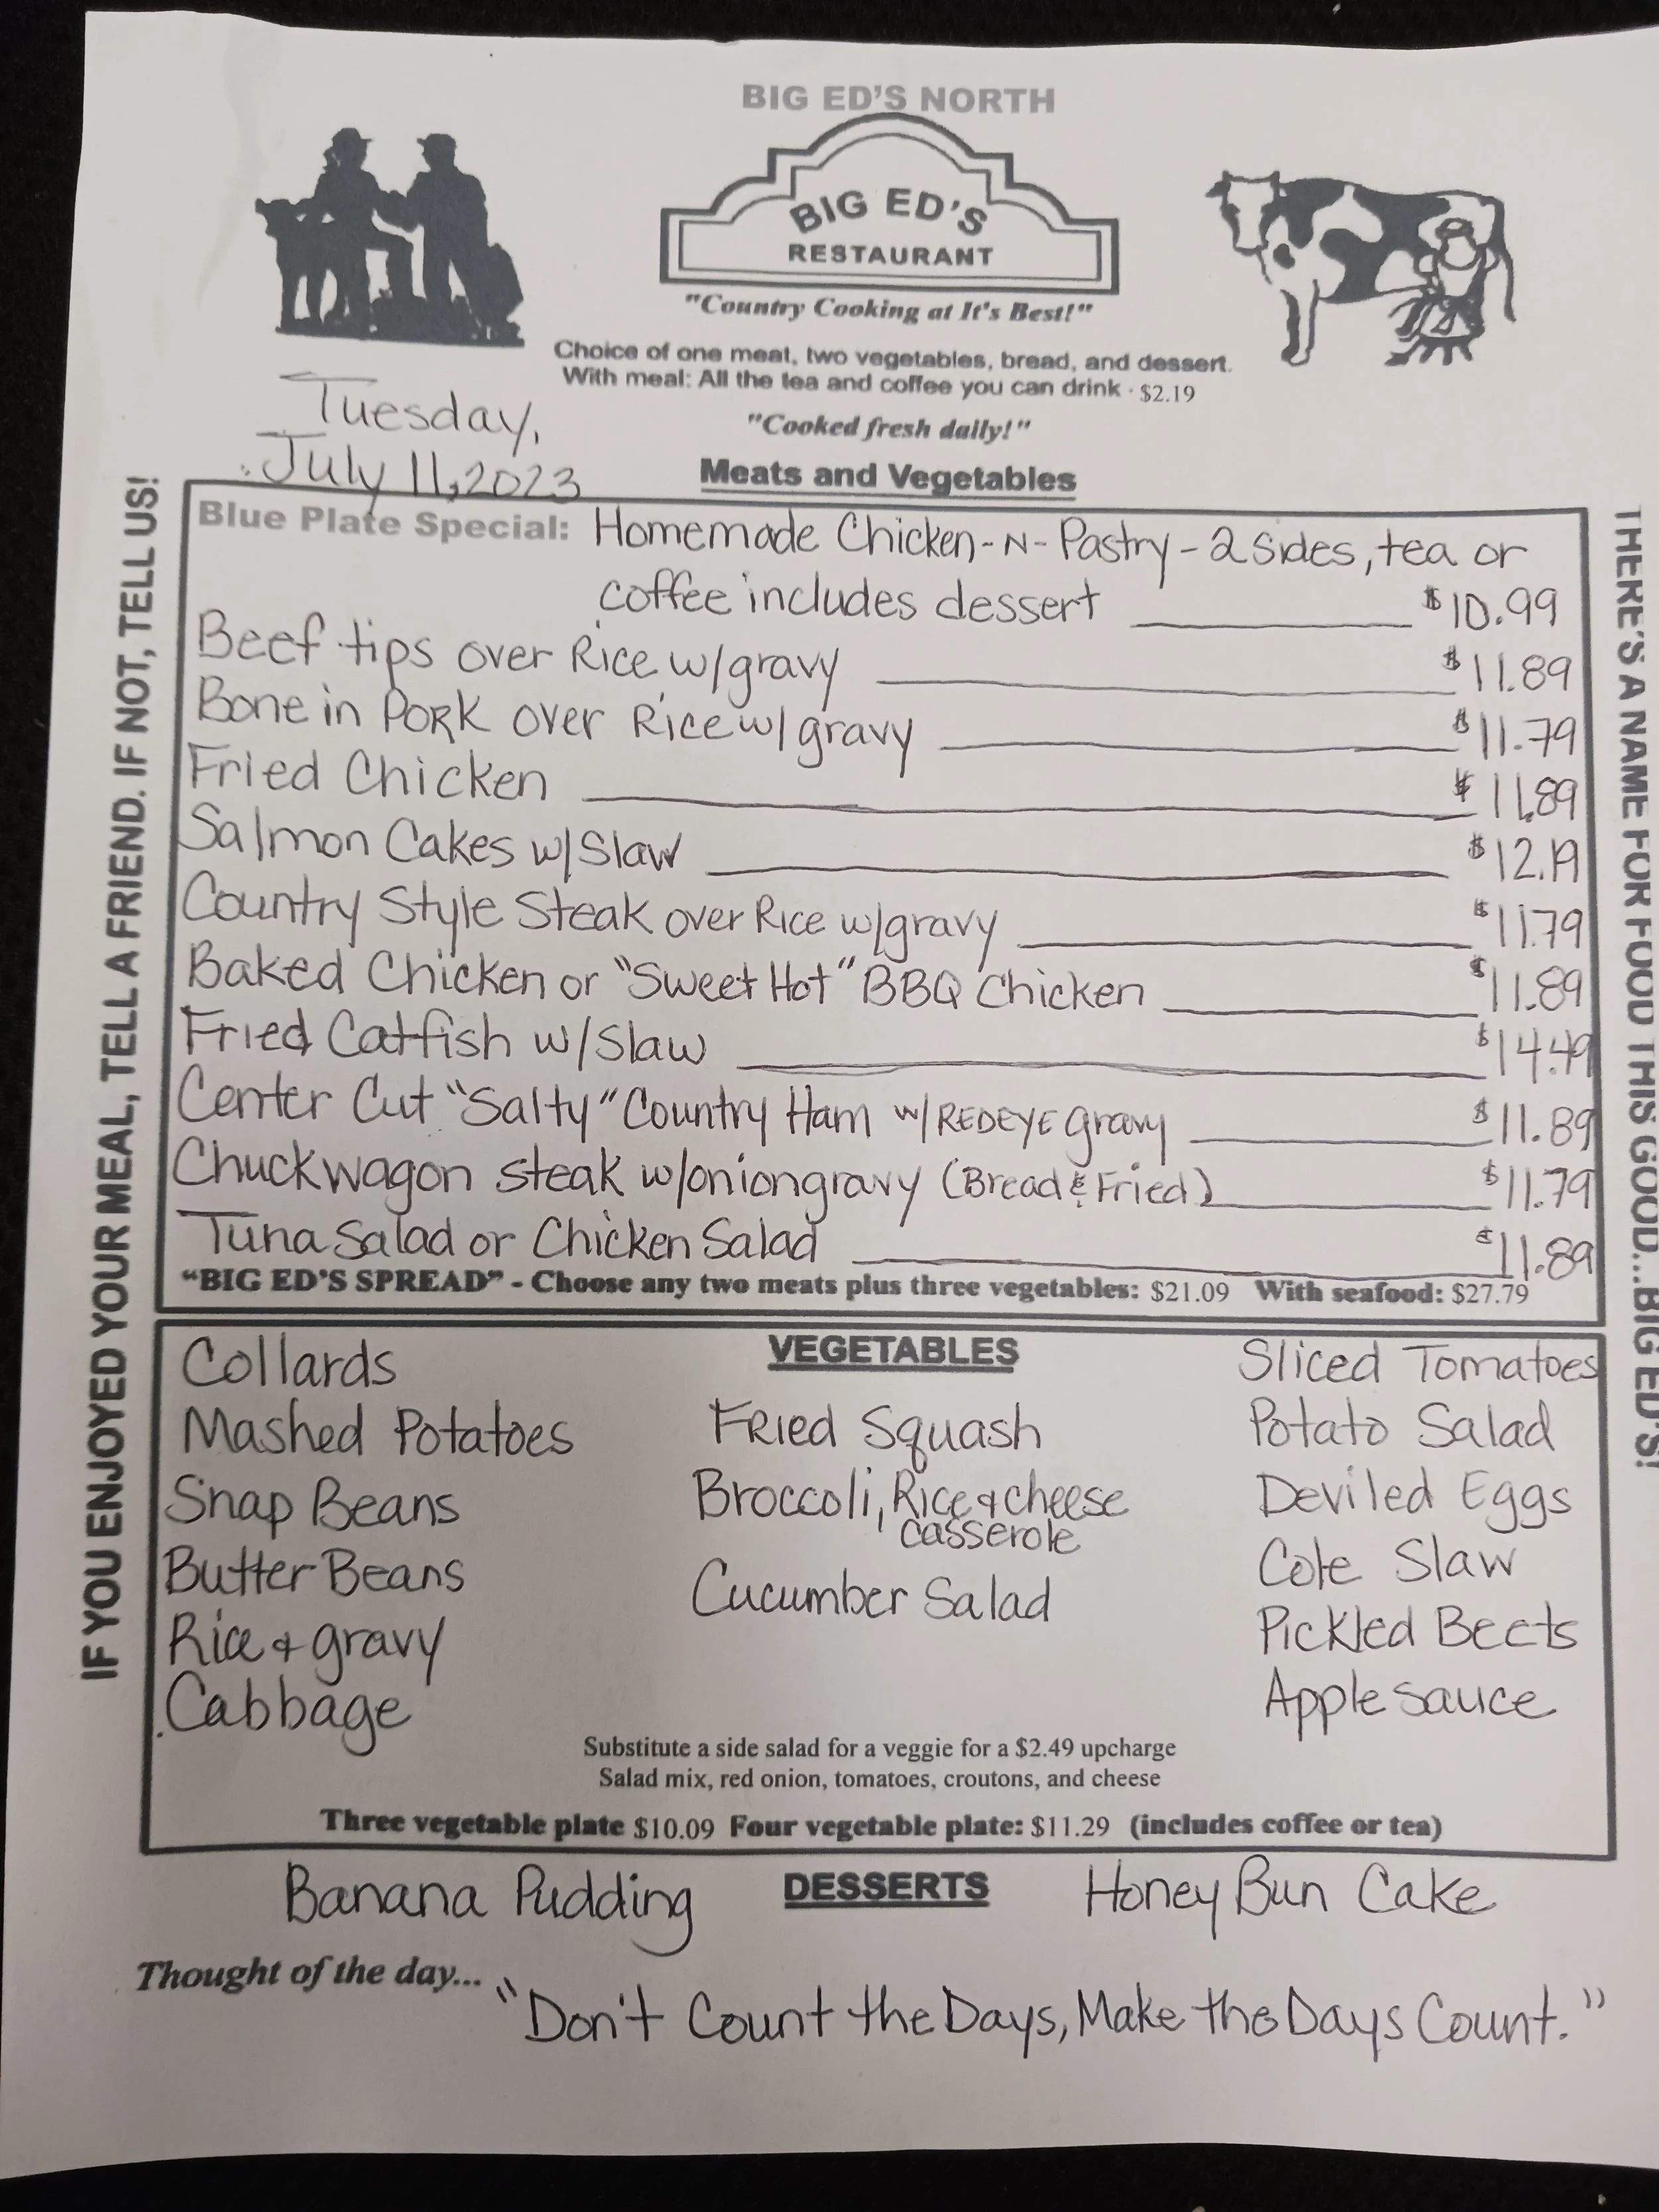 BIG ED'S NORTH
BIG ED'S
RESTAURANT
"Country Cooking at It's Best!"
Choice of one meat, two vegetables, bread, and dessert.
With meal: All the tea and coffee you can drink · $2.19
"Cooked fresh daily!"
Tuesday,
July 11, 2023
Meats and Vegetables
Blue Plate Special: Homemade Chicken-N-Pastry - 2 sides, tea or
coffee includes dessert $10.99
Beef tips over Rice w/gravy $11.89
Bone in PORK over Rice w/gravy $11.79
Fried Chicken $11.89
Salmon Cakes w/Slaw $12.19
Country Style Steak over Rice w/gravy $11.79
Baked Chicken or "Sweet Hot" BBQ Chicken $11.89
Fried Catfish w/Slaw $14.49
Center Cut "Salty" Country Ham w/REDEYE gravy $11.89
Chuckwagon steak w/onion gravy (Bread & Fried) $11.79
Tuna Salad or Chicken Salad $11.89
"BIG ED'S SPREAD" - Choose any two meats plus three vegetables: $21.09 With seafood: $27.79
VEGETABLES
Collards
Mashed Potatoes
Snap Beans
Butter Beans
Rice & gravy
Cabbage
Fried Squash
Broccoli, Rice & cheese
casserole
Cucumber Salad
Sliced Tomatoes
Potato Salad
Deviled Eggs
Cole Slaw
Pickled Beets
Apple sauce
Substitute a side salad for a veggie for a $2.49 upcharge
Salad mix, red onion, tomatoes, croutons, and cheese
Three vegetable plate $10.09 Four vegetable plate: $11.29 (includes coffee or tea)
DESSERTS
Banana Pudding
Honey Bun Cake
Thought of the day...
"Don't Count the Days, Make the Days Count."
IF YOU ENJOYED YOUR MEAL, TELL A FRIEND. IF NOT, TELL US!
THERE'S A NAME FOR FOOD THIS GOOD...BIG ED'S!